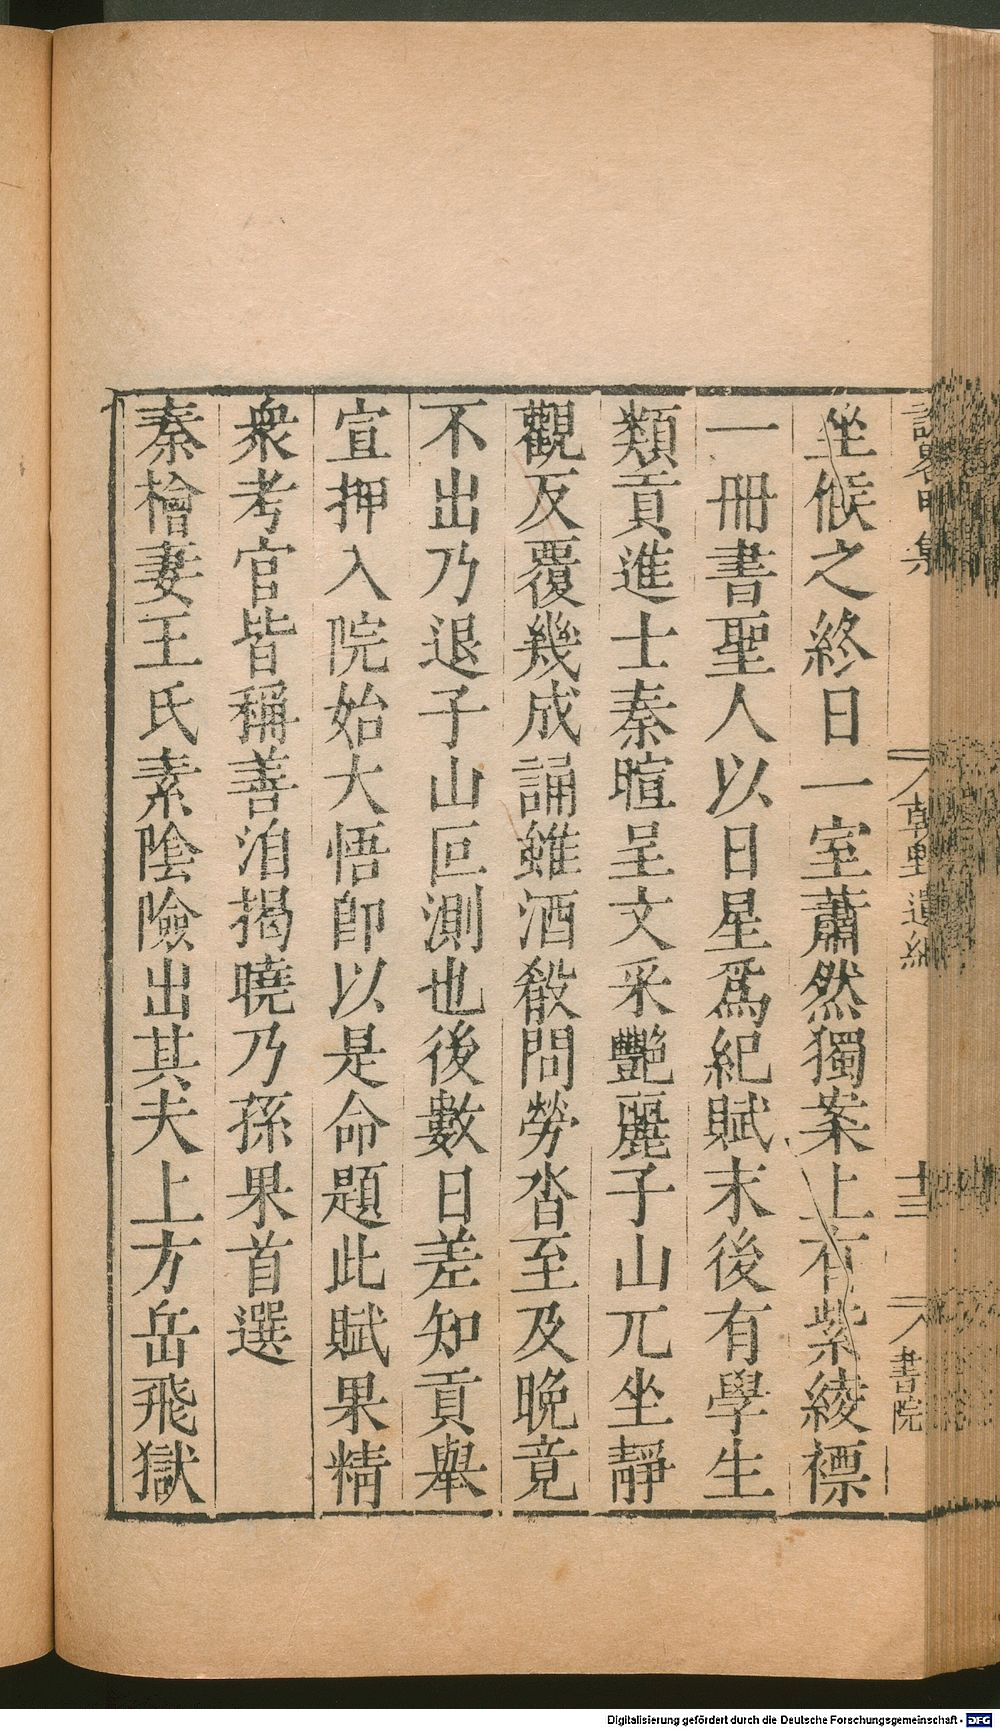 坐候之終日一室蕭然獨案上有紫綾褾
一冊書聖人以日星爲紀賦末後有學生
類貢進士秦暄呈文采艷麗子山兀坐靜
觀反覆幾成誦雖酒殽問勞沓至及晚竟
不出乃退子山叵測也後數日差知貢舉
宣押入院始大悟卽以是命題此賦果精
衆考官皆稱善洎揭曉乃孫果首選
秦檜妻王氏素陰險出其夫上方岳飛獄
朝野遺紀
十三
書院
Digitalisierung gefördert durch die Deutsche Forschungsgemeinschaft - DFG